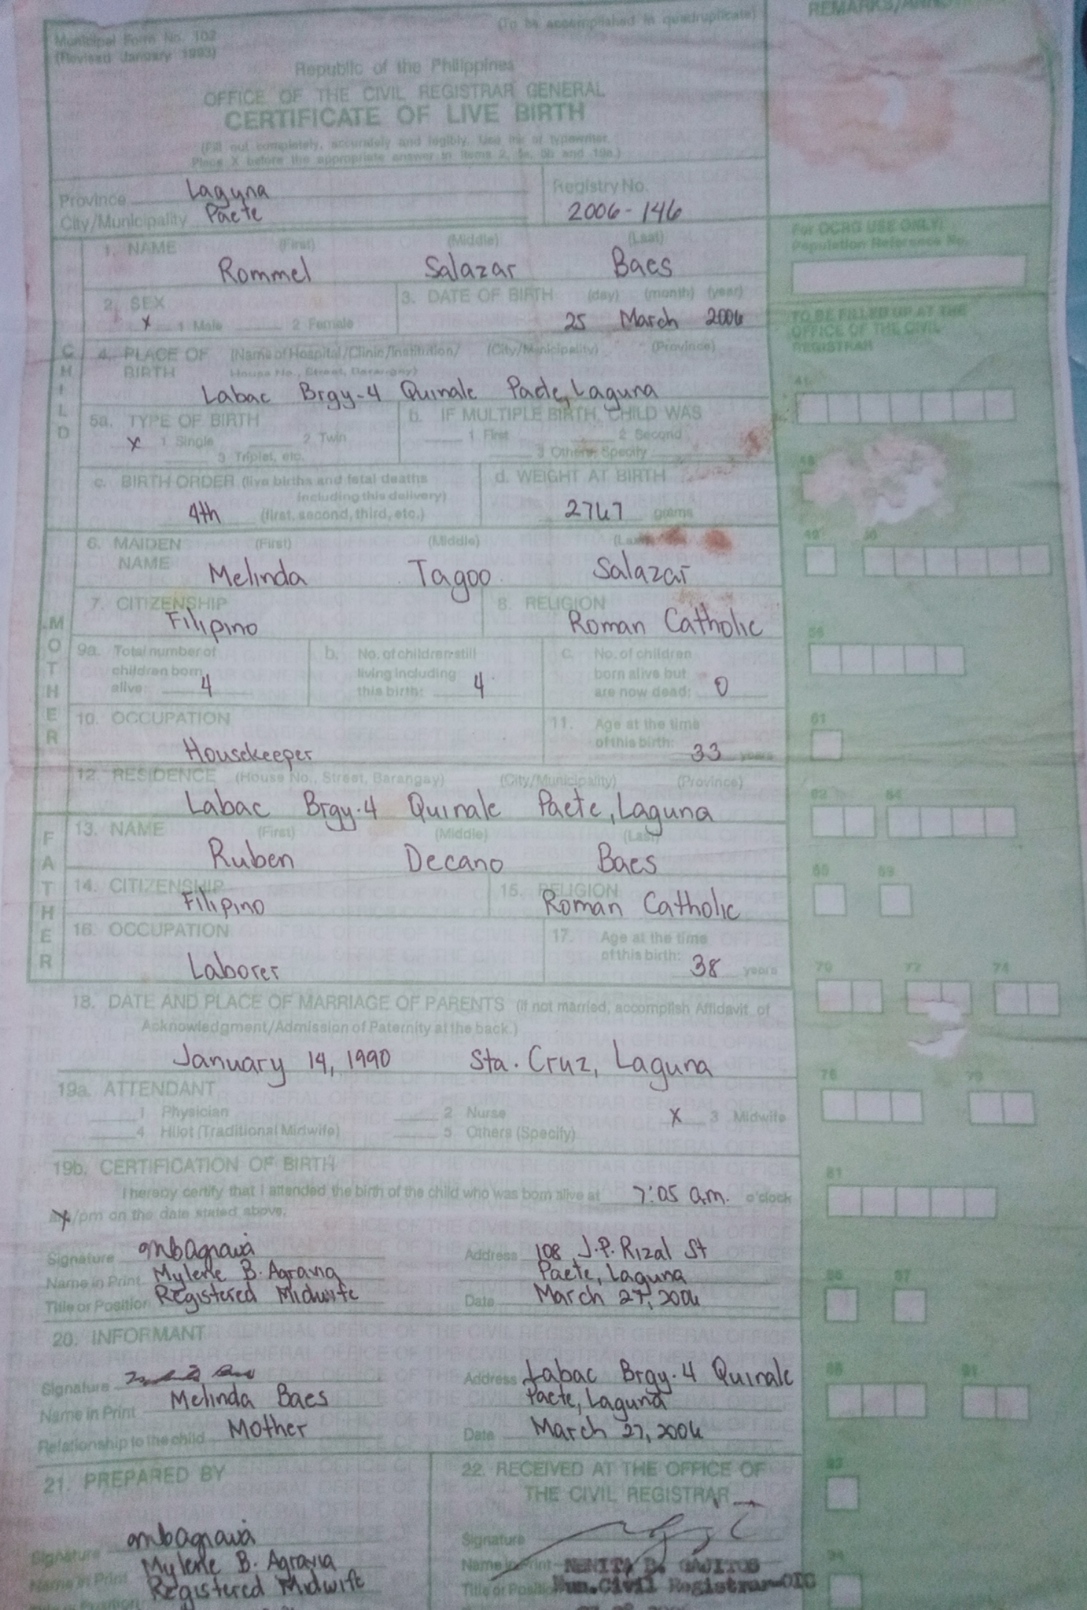 Municipal Form No. 102
(Revised January 1993)
(To be accomplished in quadruplicate)
REMARKS/
Republic of the Philippines
OFFICE OF THE CIVIL REGISTRAR GENERAL
CERTIFICATE OF LIVE BIRTH
(Fill out completely, accurately and legibly. Use ink or typewriter.
Place X before the appropriate answer in items 2, 5a, 5b and 19a.)
Province Laguna
City/Municipality Paete
Registry No.
2006-146
For OCRG USE ONLY:
Population Reference No.
TO BE FILLED UP AT THE
OFFICE OF THE CIVIL
REGISTRAR
CHILD
1. NAME (First) (Middle) (Last)
Rommel Salazar Baes
2. SEX
x 1 Male 2 Female
3. DATE OF BIRTH (day) (month) (year)
25 March 2006
4. PLACE OF BIRTH (Name of Hospital/Clinic/Institution/ (City/Municipality) (Province)
House No., Street, Barangay)
Labac Brgy-4 Quinale Paete, Laguna
5a. TYPE OF BIRTH
x 1 Single 2 Twin
3 Triplet, etc.
b. IF MULTIPLE BIRTH, CHILD WAS
1 First 2 Second
3 Others, Specify
c. BIRTH ORDER (live births and fetal deaths
including this delivery)
4th (first, second, third, etc.)
d. WEIGHT AT BIRTH
2767 grams
MOTHER
6. MAIDEN NAME (First) (Middle) (Last)
Melinda Tagoo Salazar
7. CITIZENSHIP
Filipino
8. RELIGION
Roman Catholic
9a. Total number of
children born
alive: 4
b. No. of children still
living including
this birth: 4
c. No. of children
born alive but
are now dead: 0
10. OCCUPATION
Housekeeper
11. Age at the time
of this birth: 33 years
12. RESIDENCE (House No., Street, Barangay) (City/Municipality) (Province)
Labac Brgy.4 Quinale Paete, Laguna
FATHER
13. NAME (First) (Middle) (Last)
Ruben Decano Baes
14. CITIZENSHIP
Filipino
15. RELIGION
Roman Catholic
16. OCCUPATION
Laborer
17. Age at the time
of this birth: 38 years
18. DATE AND PLACE OF MARRIAGE OF PARENTS (If not married, accomplish Affidavit of
Acknowledgment/Admission of Paternity at the back.)
January 14, 1990 Sta. Cruz, Laguna
19a. ATTENDANT
1 Physician 2 Nurse x 3 Midwife
4 Hilot (Traditional Midwife) 5 Others (Specify)
19b. CERTIFICATION OF BIRTH
I hereby certify that I attended the birth of the child who was born alive at 7:05 a.m. o'clock
am/pm on the date stated above.
Signature mbagravia
Name in Print Mylene B. Agravia
Title or Position Registered Midwife
Address 108 J.P. Rizal St
Paete, Laguna
Date March 27, 2006
20. INFORMANT
Signature
Name in Print Melinda Baes
Relationship to the child Mother
Address Labac Brgy. 4 Quinale
Paete, Laguna
Date March 27, 2006
21. PREPARED BY
Signature mbagravia
Name in Print Mylene B. Agravia
Title or Position Registered Midwife
22. RECEIVED AT THE OFFICE OF
THE CIVIL REGISTRAR
Signature
Name in Print
Title or Position Mun. Civil Registrar-OIC